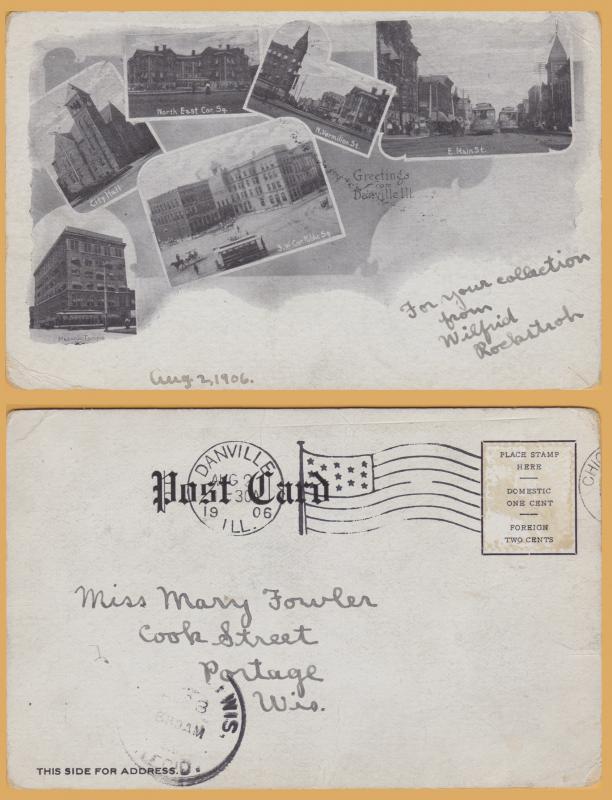 North East Cor. Sq.
N. Vermilion St.
E. Main St.
City Hall
Greetings
from
Danville Ill.
Masonic Temple
For your collection
from
Wilfrid
Rockstroh
Aug. 2, 1906.
Post Card
DANVILLE
AUG 2
30
19 06
ILL.
PLACE STAMP
HERE
DOMESTIC
ONE CENT
FOREIGN
TWO CENTS
CHIC
Miss Mary Fowler
Cook Street
Portage
Wis.
WIS.
AM
REC'D.
THIS SIDE FOR ADDRESS.